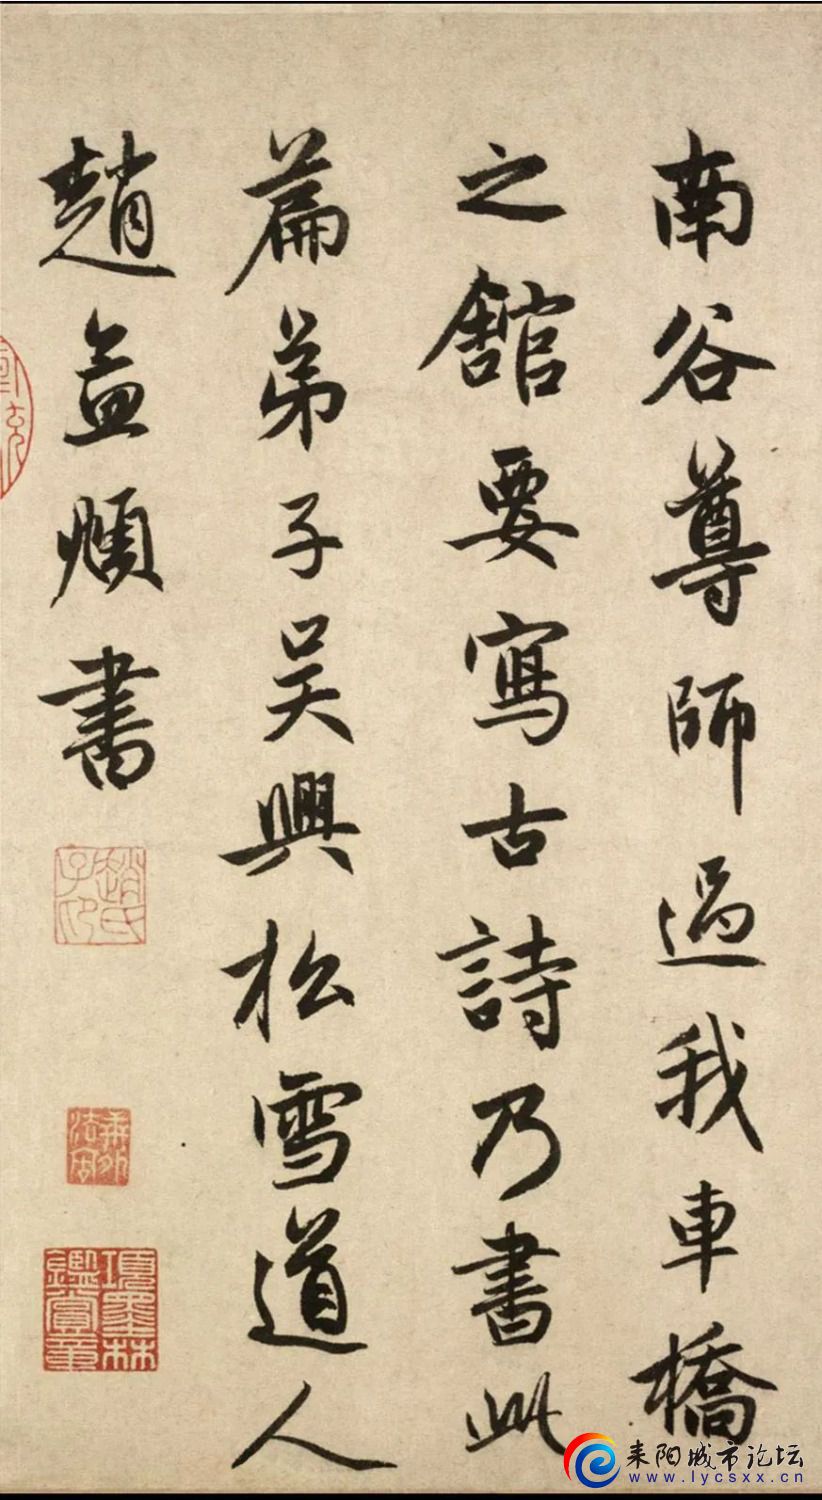 南谷尊師過我車橋
之舘要寫古詩乃書此
篇弟子吴興松雪道人
趙孟頫書
趙氏子印
項墨林鑑賞章
耒阳城市论坛
www.lycsxx.cn